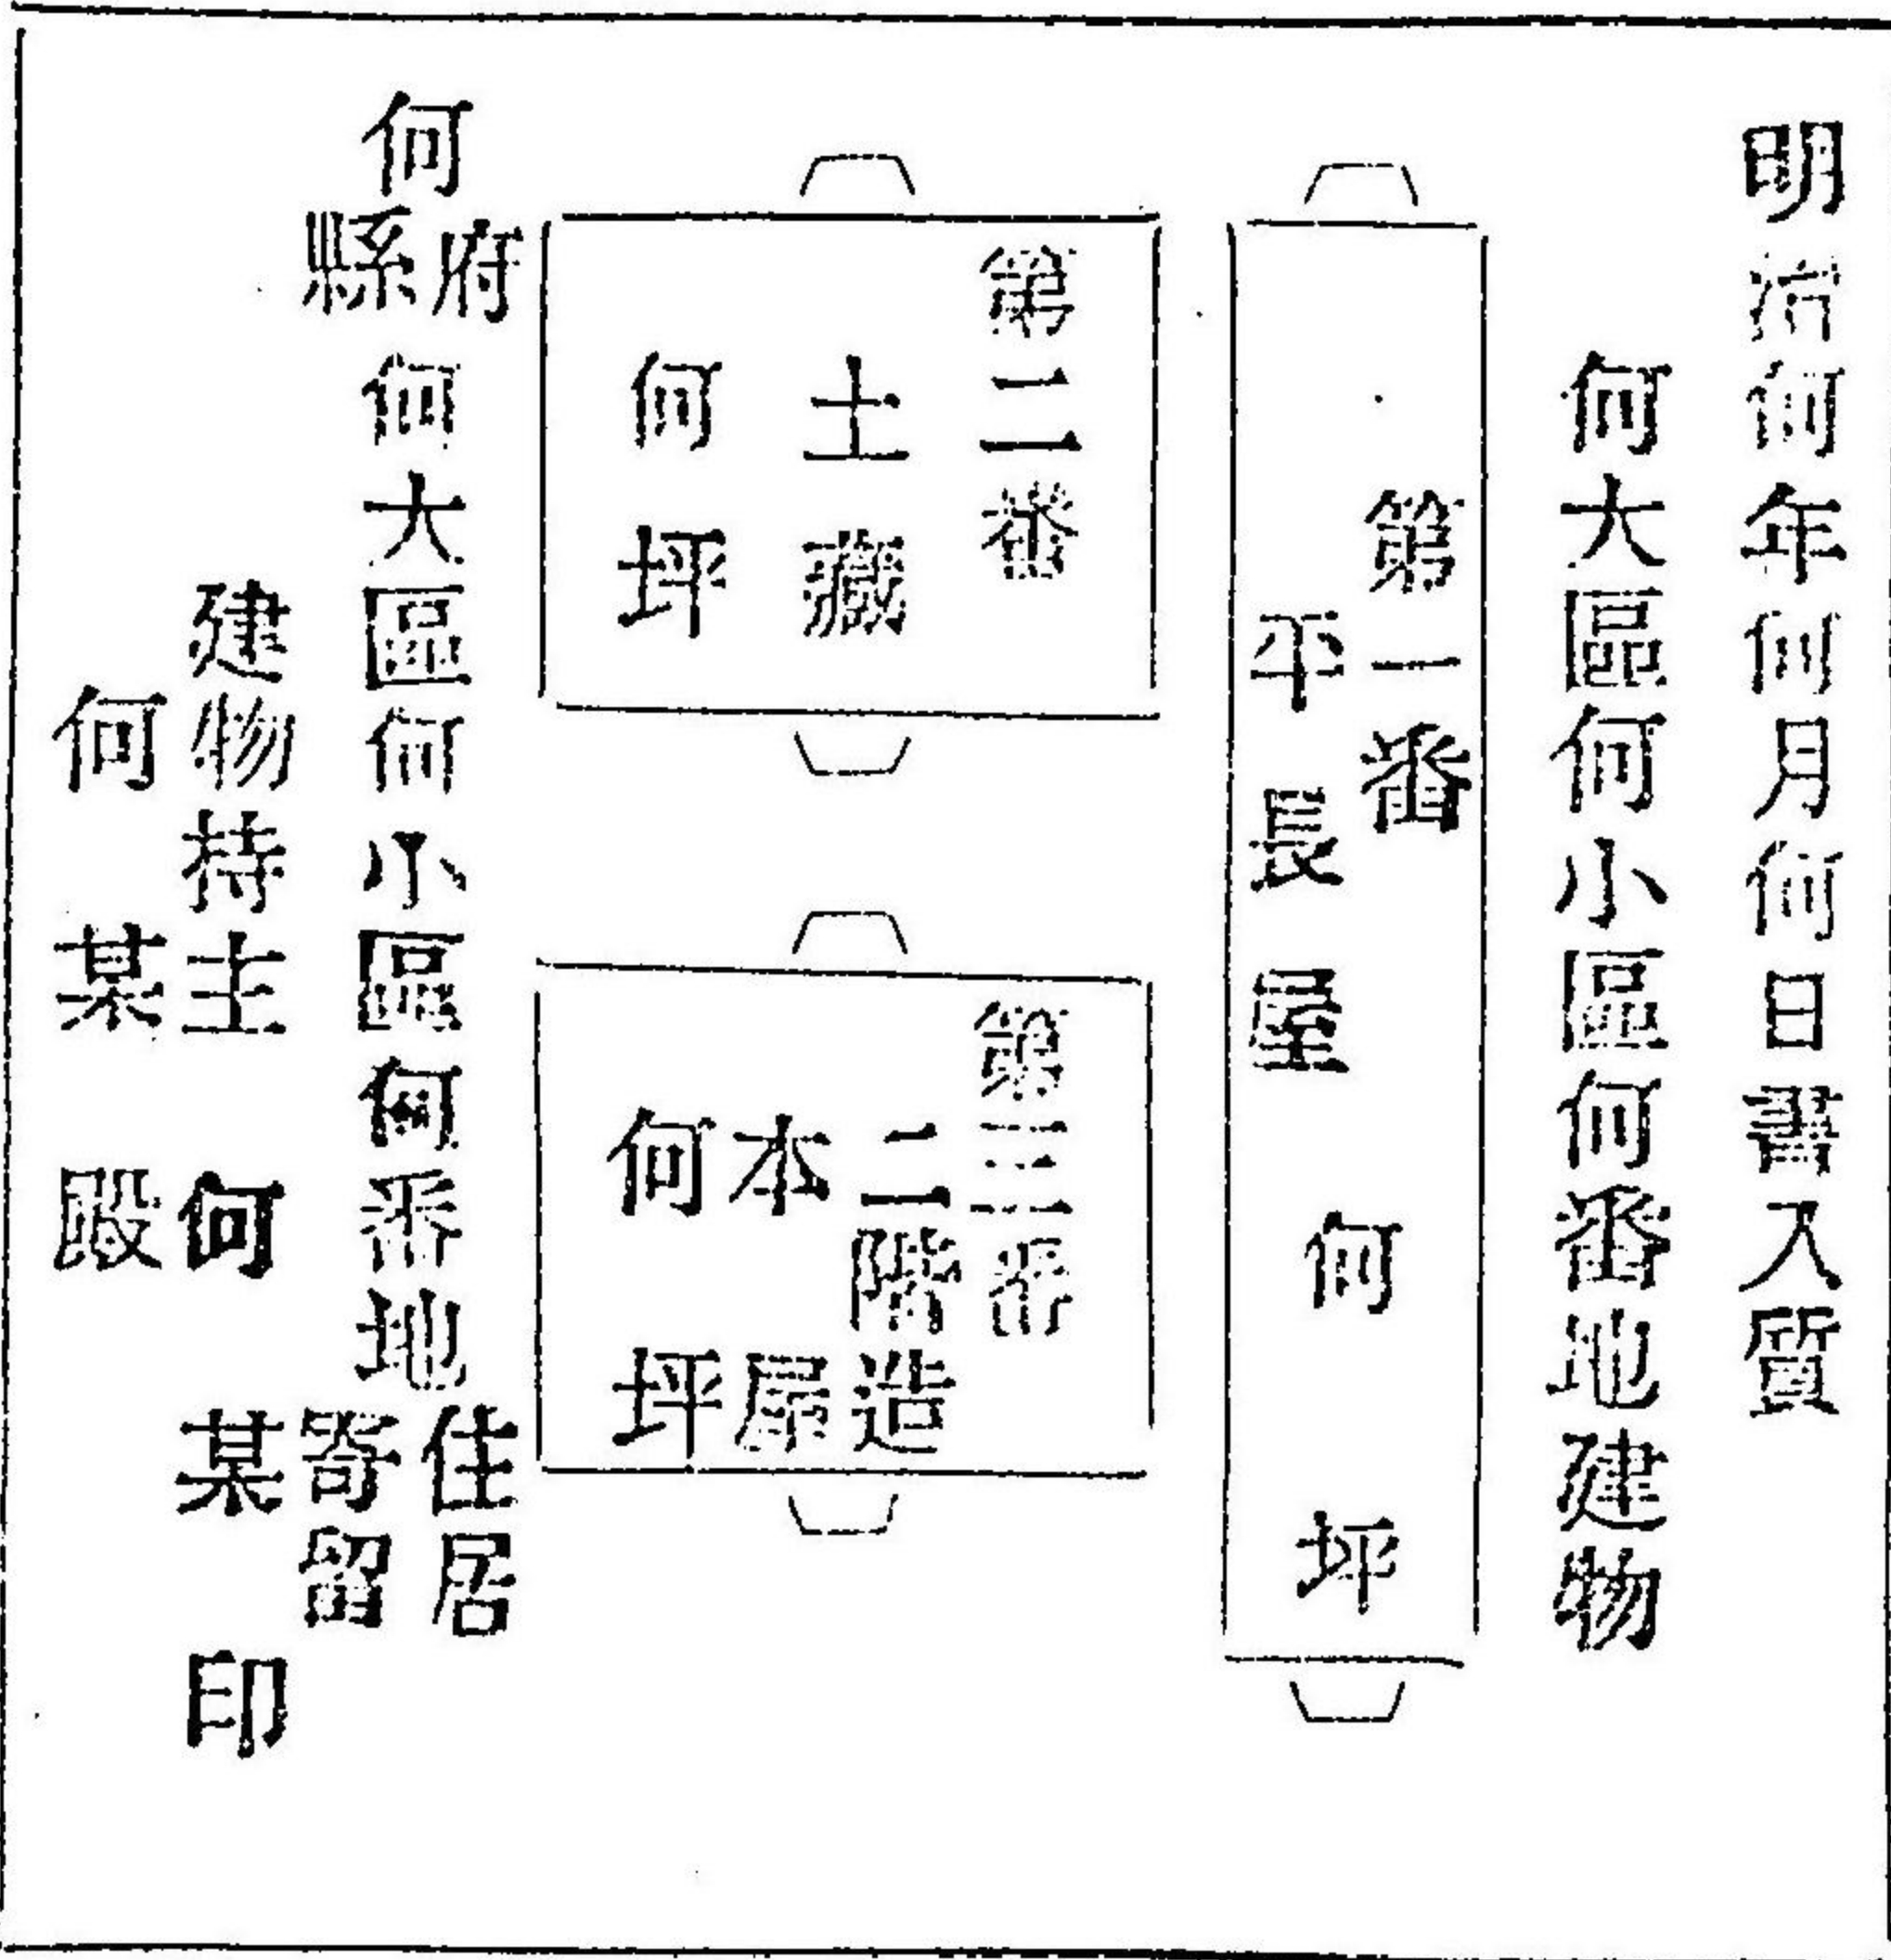 明治何年何月何日書入質
何大區何小區何番地建物
第一番
平長屋
何坪
第二番
土藏
何坪
第三番
二階造
本屋
何坪
何府縣何大區何小區何番地住居寄留
建物持主 何某 印
何某殿